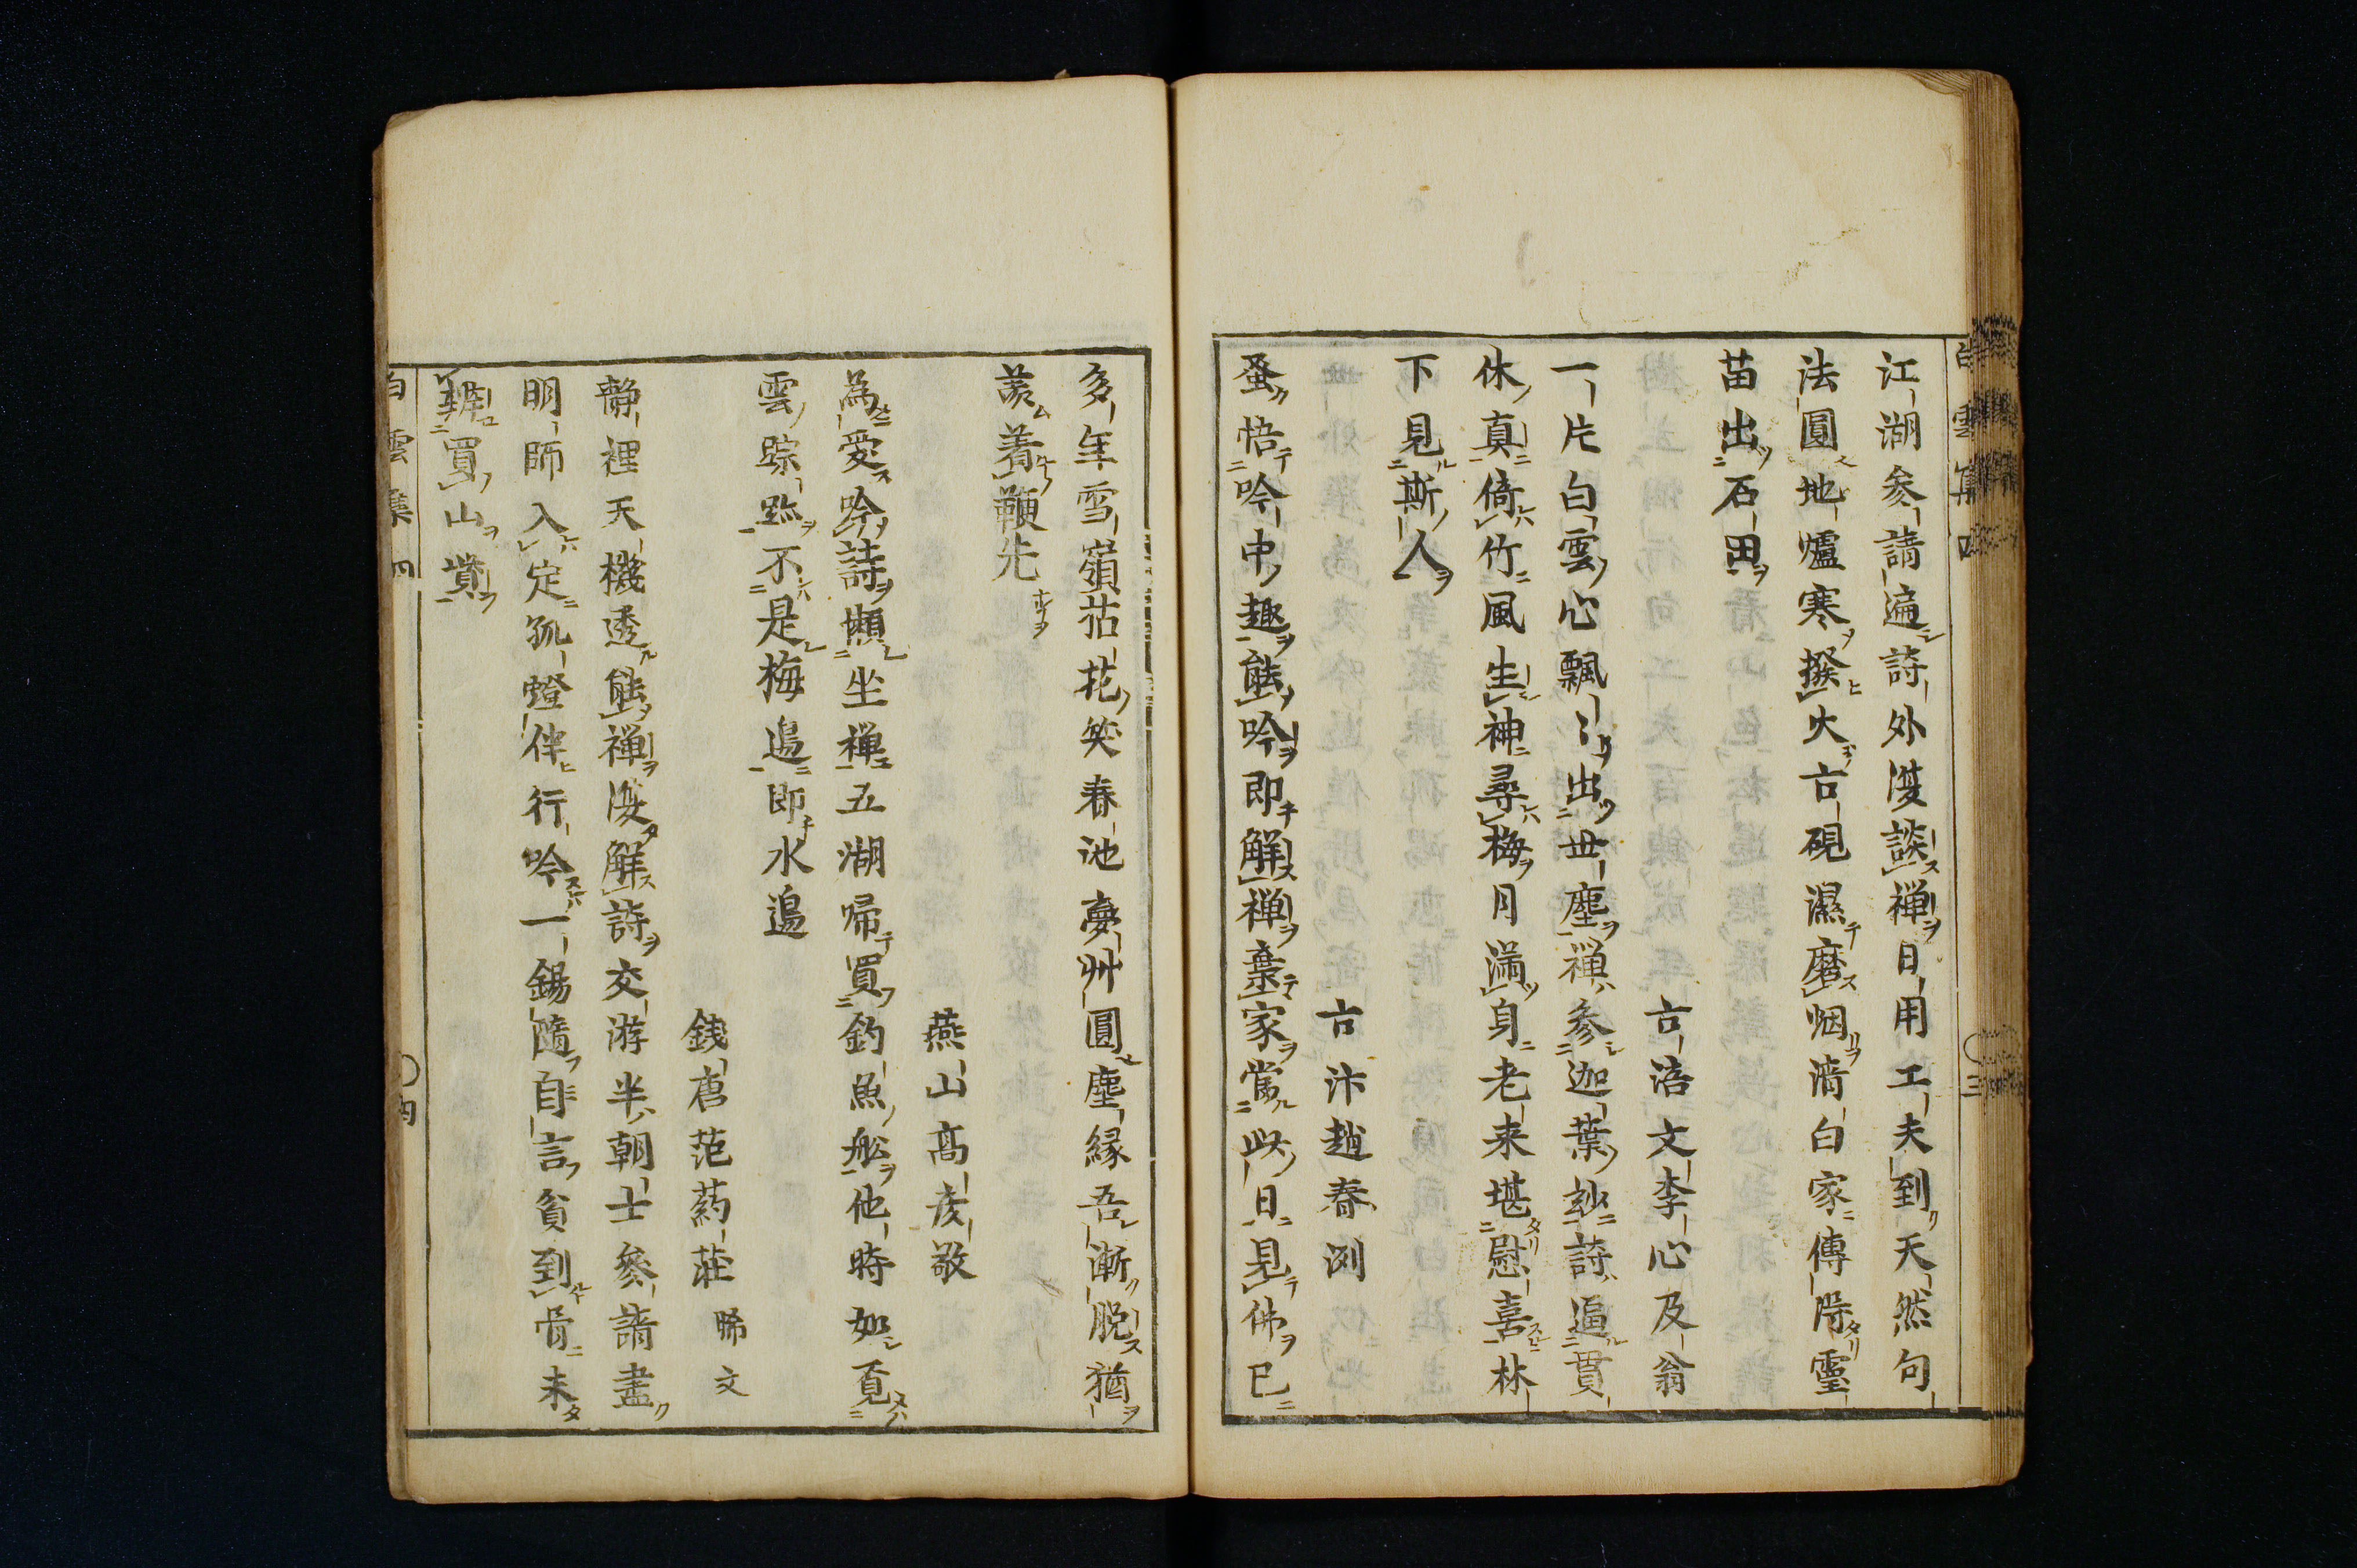 江湖参請遍詩外没談禅日用工夫到天然句
法圓地爐寒撥火古硯濕磨烟清白家傳得靈
苗出石田
古涪文李心及翁
一片白雲心飄〻出世塵禅参迦葉玅詩逼貫
休真倚竹風生神尋梅月満身老来堪慰喜林
下見斯人
古汴趙春洌
蚤悟吟中趣能吟即解禅棄家當此日見佛已
多年雪嶺拈花笑春池夢艸圓塵縁吾漸脱猶
羡着鞭先
燕山高彦敬
為愛吟詩懶坐禅五湖帰買釣魚船他時如覔
雲踪跡不是梅邉即水邉
錢唐范葯荘 晞文
静裡天機透能禅没解詩交游半朝士參請盡
明師入定孤燈伴行吟一錫隨自言貧到骨未
辦買山貲
白雲集四